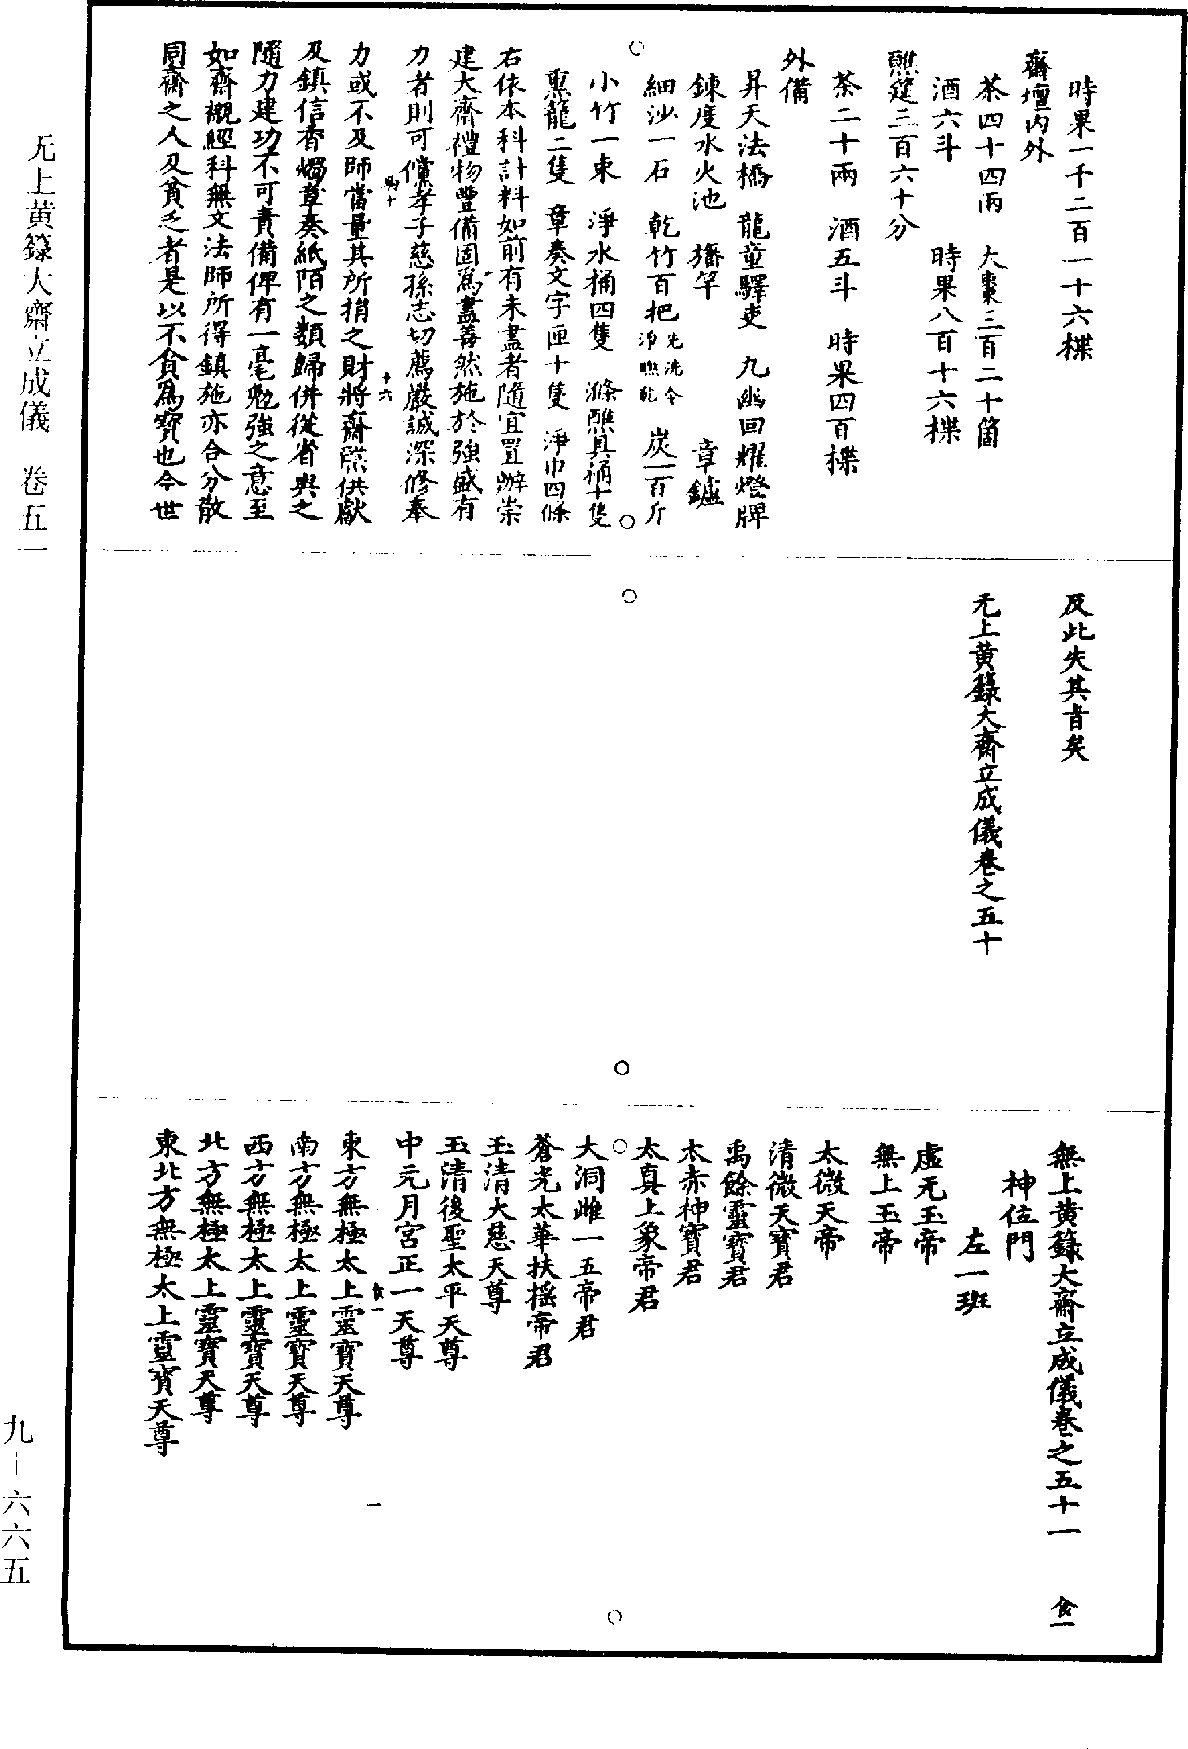 時果一千二百一十六楪
齋壇內外
茶四十四兩　大棗三百二十箇
酒六斗　時果八百十六楪
醮筵三百六十分
茶二十兩　酒五斗　時果四百楪
外備
昇天法橋　龍童驛吏　九幽回耀燈牌
鍊度水火池　旛竿　章鑪
細沙一石　乾竹百把先洗令淨曬乾　炭一百斤
小竹一束　淨水桶四隻　滌醮具桶十隻
熏籠二隻　章奏文字匣十隻　淨巾四條
右依本科計料如前有未盡者隨宜置辦崇
建大齋禮物豐備固爲盡善然施於強盛有
力者則可儻孝子慈孫志切薦嚴誠深修奉
十六
力或不及師當量其所捐之財將齋醮供獻
及鎮信香燭章奏紙陌之類歸併從省與之
隨力建功不可責備俾有一毫勉強之意至
如齋襯經科無文法師所得鎮施亦合分散
同齋之人及貧乏者是以不貪爲寶也今世
及此失其旨矣
无上黃籙大齋立成儀卷之五十
無上黃籙大齋立成儀卷之五十一　食一
神位門
左一班
虛无玉帝
無上玉帝
太微天帝
清微天寶君
禹餘靈寶君
太赤神寶君
太真上象帝君
大洞雌一五帝君
蒼光太華扶搖帝君
玉清大慈天尊
玉清後聖太平天尊
中元月宮正一天尊
食一
一
東方無極太上靈寶天尊
南方無極太上靈寶天尊
西方無極太上靈寶天尊
北方無極太上靈寶天尊
東北方無極太上靈寶天尊
无上黃籙大齋立成儀　卷五一
九－六六五